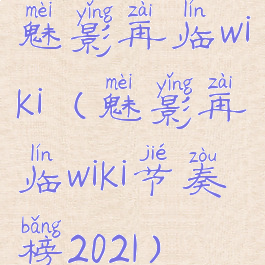 mèi yǐng zài lín
魅影再临wi
mèi yǐng zài
ki（魅影再
lín jié zòu
临wiki节奏
bǎng
榜2021）